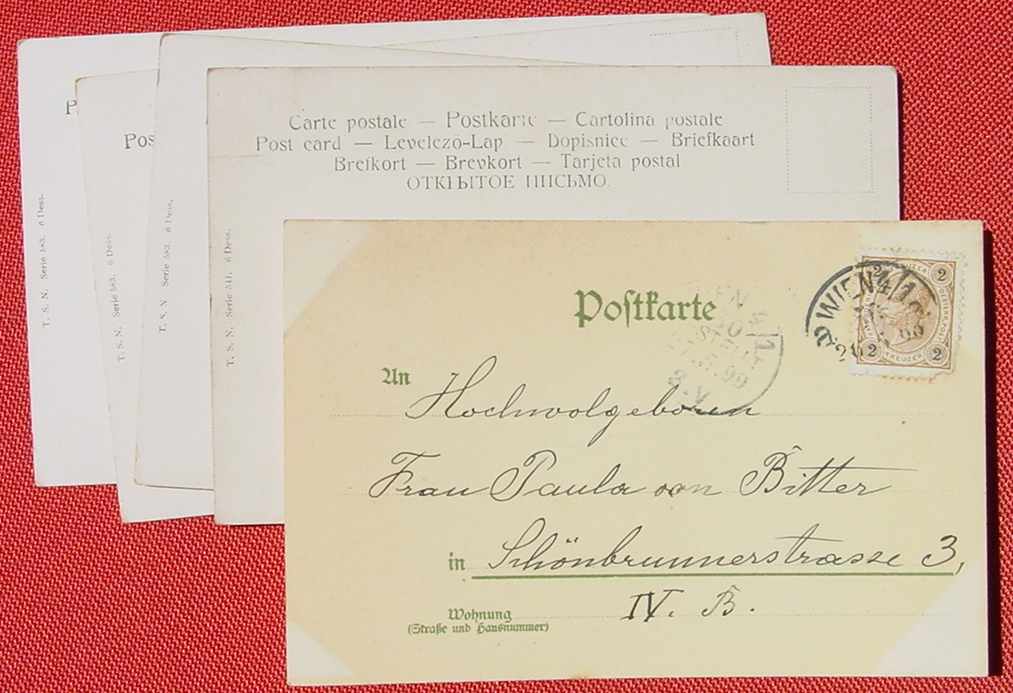 P
Pos
Carte postale — Postkarte — Cartolina postale
Post card — Levelező-Lap — Dopisnice — Briefkaart
Brefkort — Brevkort — Tarjeta postal
ОТКРЫТОЕ ПИСЬМО.
T. S. N. Serie 583. 6 Dess.
T. S. N. Serie 583. 6 Dess.
T. S. N. Serie 583. 6 Dess.
T. S. N. Serie 511. 6 Dess.
Postkarte
2 2
WIEN 4/1
2 KREUZER 2
BESTELLT
99
An Hochwolgeboren
Frau Paula von Bitter
in Schönbrunnerstrasse 3,
IV. B.
Wohnung
(Straße und Hausnummer)